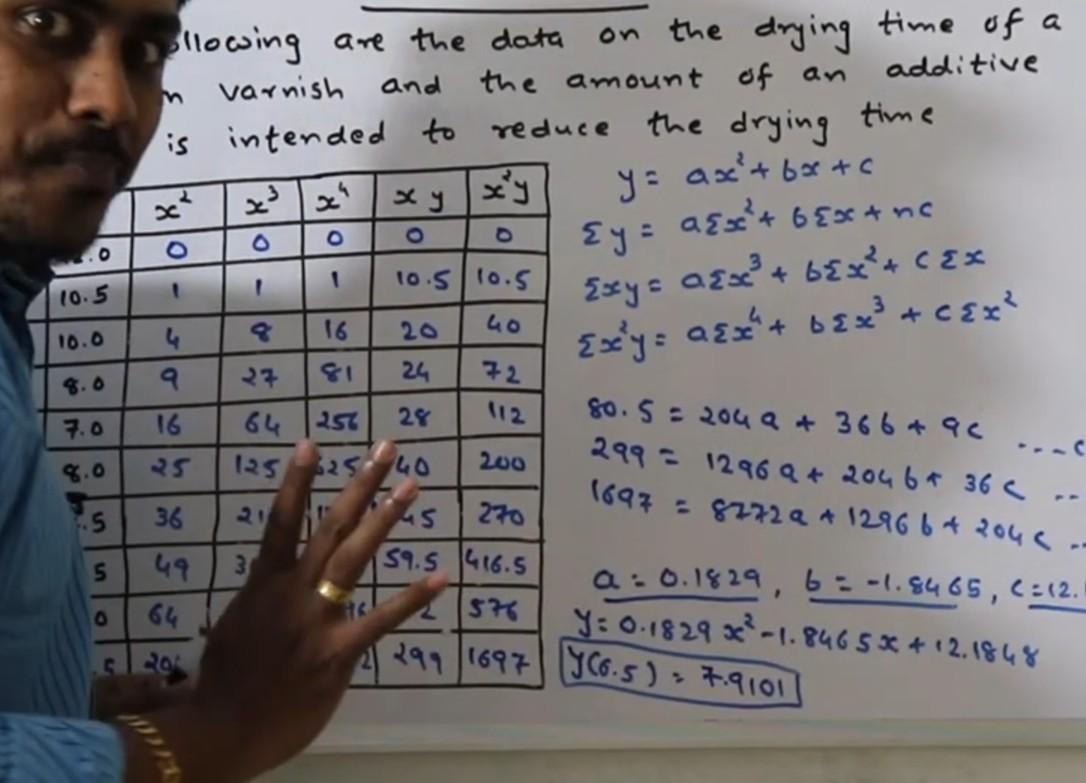 ollowing are the data on the drying time of a
n varnish and the amount of an additive
is intended to reduce the drying time
x² x³ x⁴ x y x²y
.0 0 0 0 0 0
10.5 1 1 1 10.5 10.5
10.0 4 8 16 20 40
8.0 9 27 81 24 72
7.0 16 64 256 28 112
8.0 25 125 625 40 200
.5 36 21 45 270
5 49 3 59.5 416.5
0 64 576
.5 20 2 299 1697
y = ax² + bx + c
Σy = aΣx² + bΣx + nc
Σxy = aΣx³ + bΣx² + cΣx
Σx²y = aΣx⁴ + bΣx³ + cΣx²
80.5 = 204a + 36b + 9c
299 = 1296a + 204b + 36c
1697 = 8772a + 1296b + 204c
a = 0.1829 , b = -1.8465, c = 12.
y = 0.1829x² - 1.8465x + 12.1848
y(6.5) = 7.9101